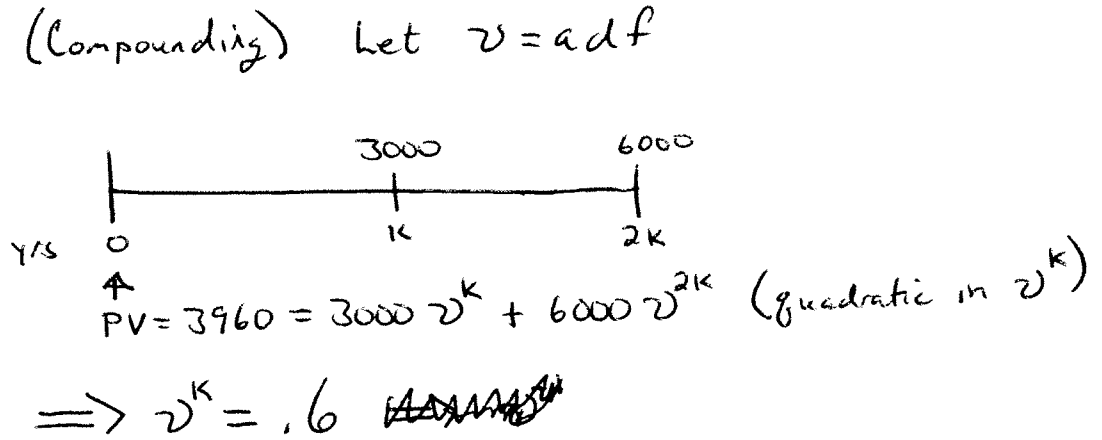 (Compounding) Let v = adf
3000 6000
yrs 0 K 2K
↑
PV = 3960 = 3000 v^K + 6000 v^2K (quadratic in v^K)
⟹ v^K = .6